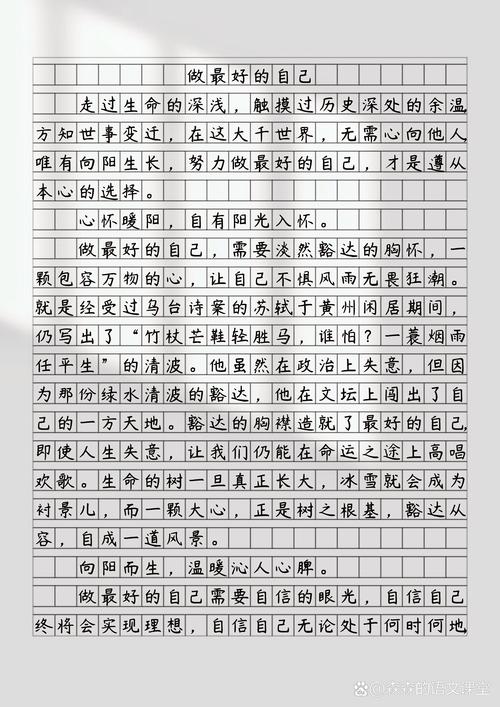 做最好的自己
走过生命的深浅，触摸过历史深处的余温，
方知世事变迁，在这大千世界，无需心向他人，
唯有向阳生长，努力做最好的自己，才是遵从
本心的选择。
心怀暖阳，自有阳光入怀。
做最好的自己，需要淡然豁达的胸怀，一
颗包容万物的心，让自己不惧风雨无畏狂潮。
就是经受过乌台诗案的苏轼于黄州闲居期间，
仍写出了“竹杖芒鞋轻胜马，谁怕？一蓑烟雨
任平生”的清波。他虽然在政治上失意，但因
为那份绿水清波的豁达，他在文坛上闯出了自
己的一方天地。豁达的胸襟造就了最好的自己，
即使人生失意，让我们仍能在命运之途上高唱
欢歌。生命的树一旦真正长大，冰雪就会成为
衬景儿，而一颗大心，正是树之根基，豁达从
容，自成一道风景。
向阳而生，温暖沁人心脾。
做最好的自己需要自信的眼光，自信自己
终将会实现理想，自信自己无论处于何时何地，
森森的语文课堂